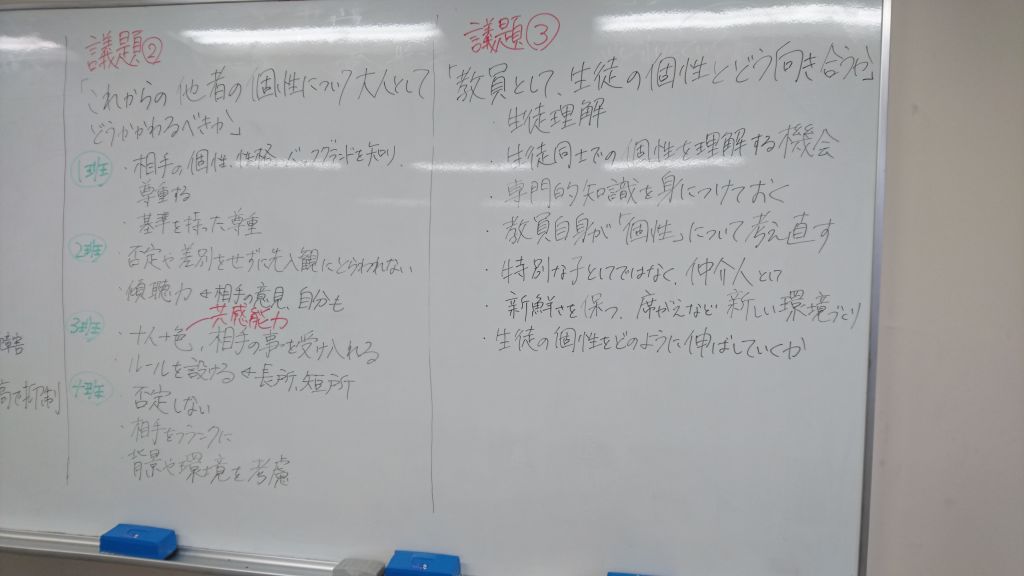 議題②
「これからの他者の個性について大人として
どうかかわるべきか」
1班
・相手の個性、性格、バックグランドを知り、
尊重する
・基準を持った尊重
2班
・否定や差別をせずに先入観にとらわれない
傾聴力 ← 相手の意見、自分も
共感能力
3班
・十人十色、相手の事を受け入れる
ルールを設ける ← 長所、短所
4班
・否定しない
・相手をフラークに
背景や環境を考慮
議題③
「教員として、生徒の個性とどう向き合うか」
・生徒理解
・生徒同士での個性を理解する機会
・専門的知識を身につけておく
・教員自身が「個性」について考え直す
・特別な子としてではなく、仲介人として
・新鮮さを保つ、席がえなど新しい環境づくり
・生徒の個性をどのように伸ばしていくか
害
抑制